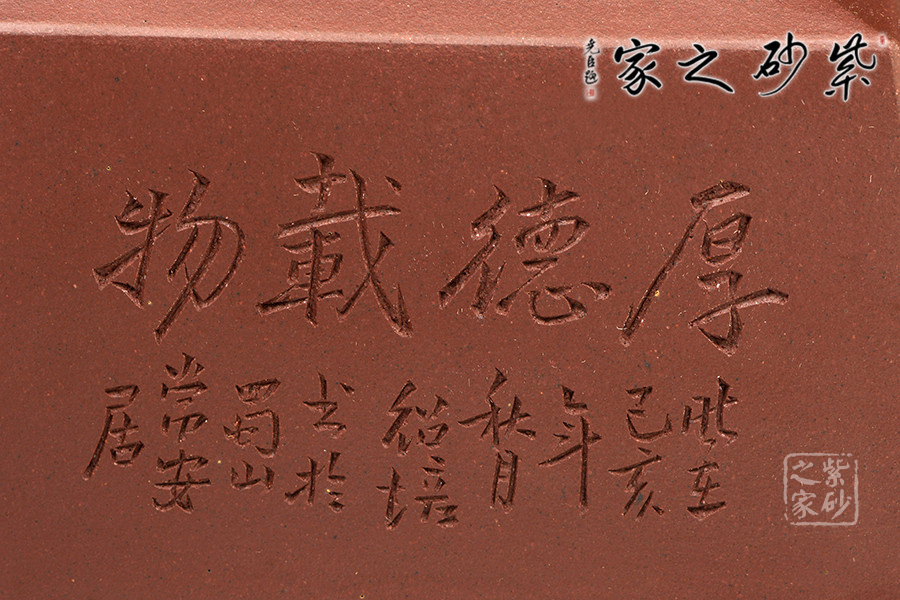 紫砂之家
尧臣題
厚德載物
時在
己亥
年
秋月
紹培
书於
蜀山
常安
居
紫砂
之家